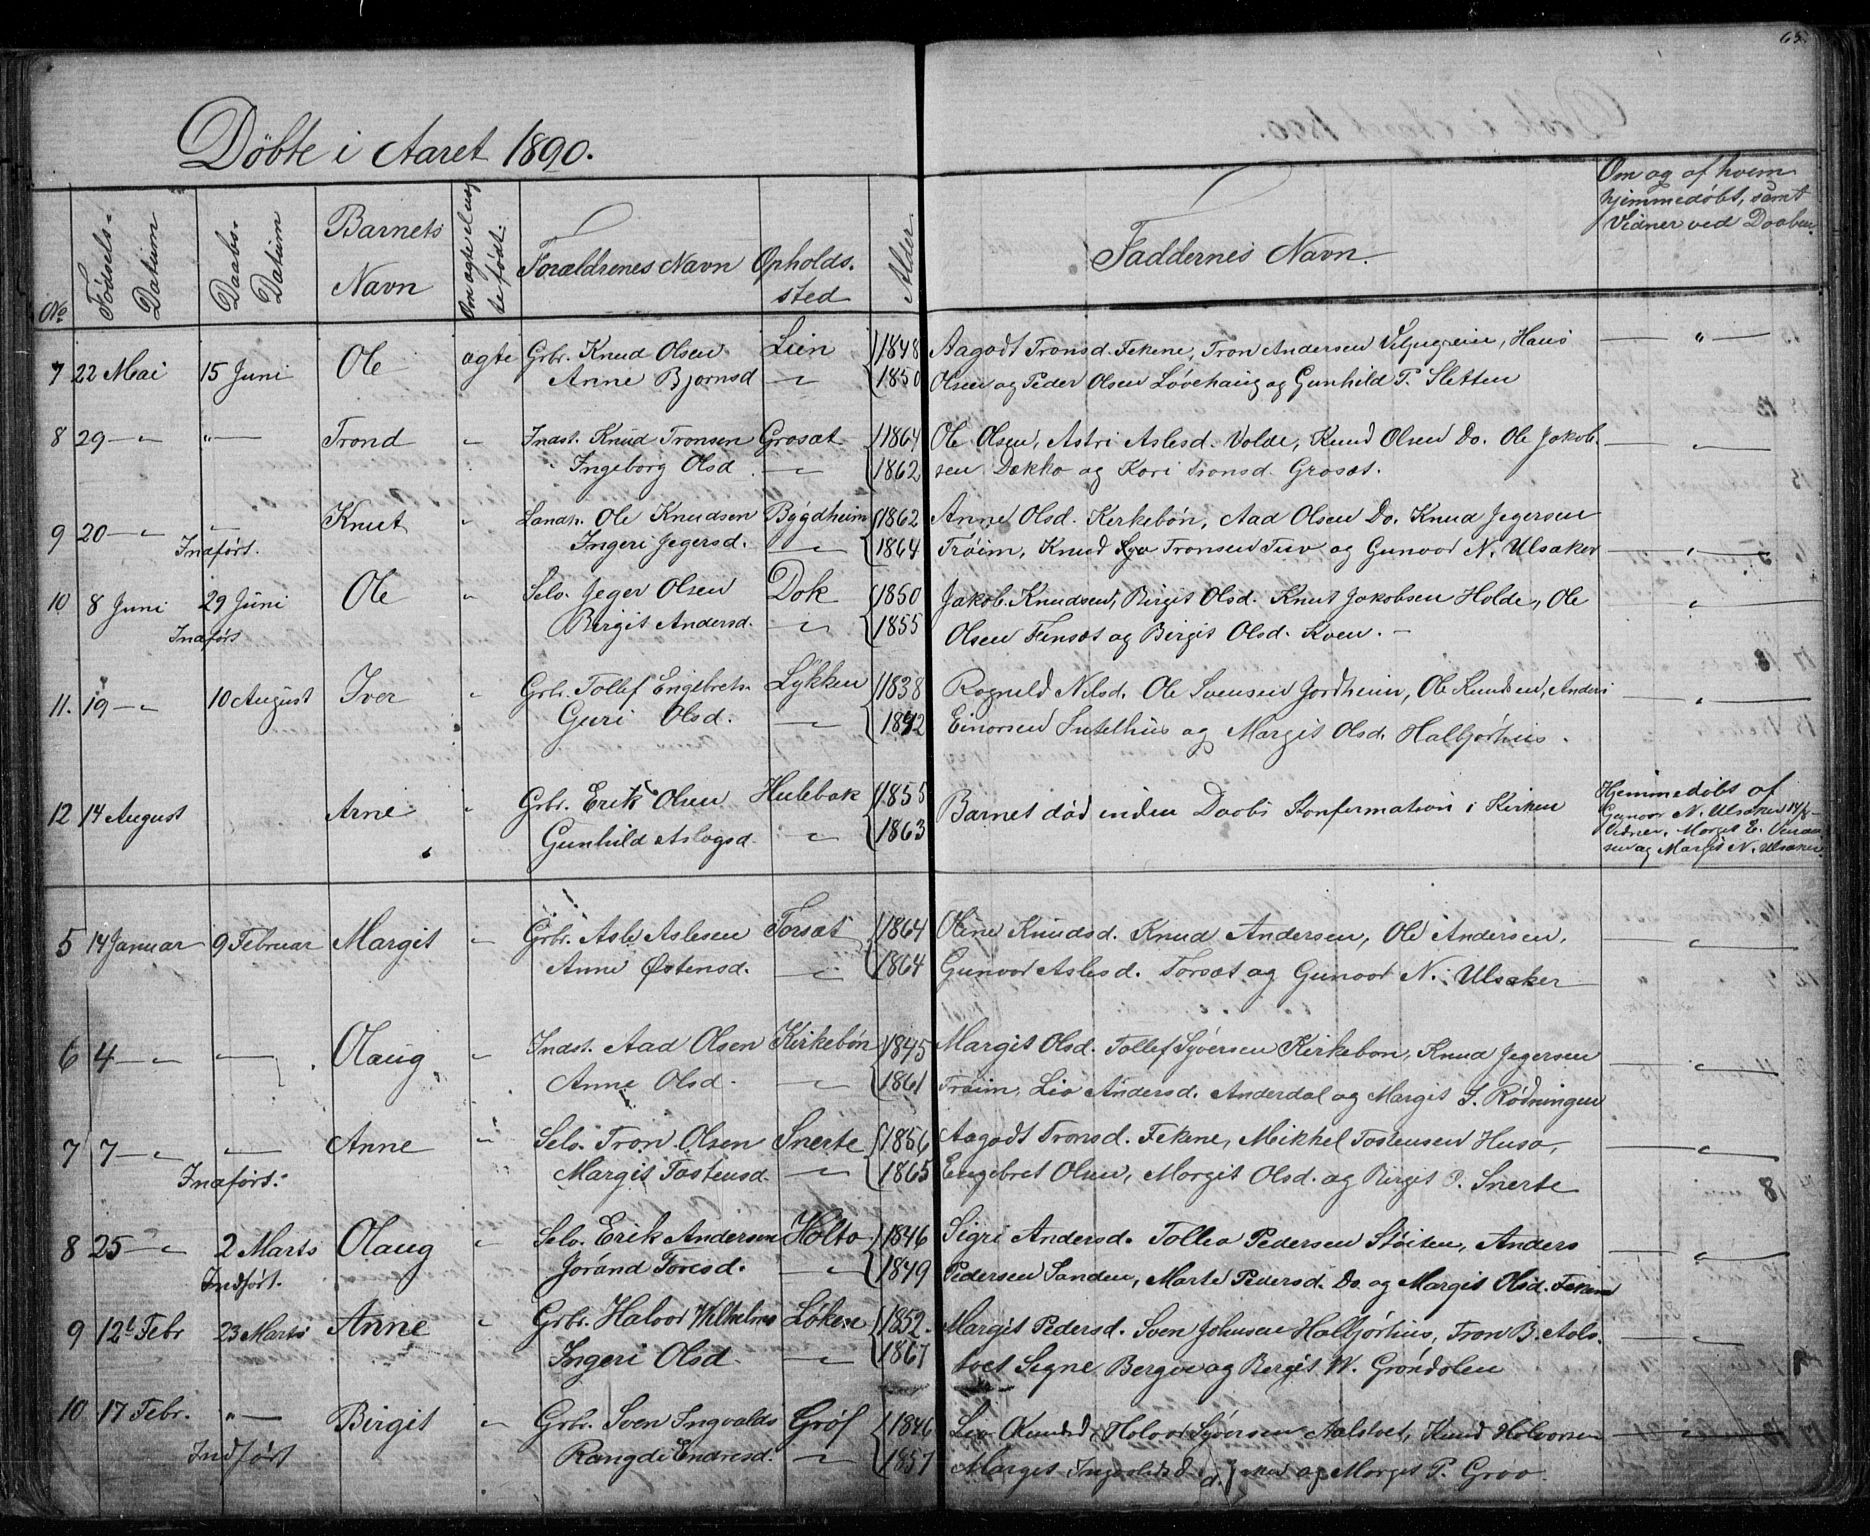 65.
Döbte i Aaret 1890.
No
Födsels-
Datum
Daabs-
Datum
Barnets
Navn
Om ægte el uæg
te födt.
Forældrenes Navn
Opholds.
sted
Alder
Faddernes Navn.
Om og af hvem
hjemmedöbt, samt
Vidner ved Daaben.
7 22 Mai 15 Juni Ole ægte Grbr. Knud Olsen Lien 1848 Aagodt Tronsd. Fekene, Tron Andersen, Hans — " —
Anne Bjornsd — " — 1850 Olsen og Peder Olsen Lövehaug og Gunhild P. Sletten
8 29 — " — " — Trond " Indst. Knud Tronsen Grosæt 1864 Ole Olsen, Astri Aslesd. Volde, Knud Olsen Do. Ole Jakob- — " —
Ingeborg Olsd — " — 1862 sen Dekko og Kari Tronsd. Grosæt.
9 20 — " — " — Knut " Landh. Ole Knudsen Bygdheim 1862 Anne Olsd. Kirkebön, Aad Olsen Do. Knud Jegersen
Indfört. Ingeri Jegersd. — " — 1864 Tröim, Knud Tronsen Tuv og Gunvor N. Ulsaker — " —
10 8 Juni 29 Juni Ole " Selv. Jeger Olsen Dok 1850 Jakob Knudsen, Birgit Olsd. Knut Jakobsen Holde, Ole — " —
Indfört Birgit Andersd. — " — 1855 Olsen Finsæt og Birgit Olsd. Kven. —
11. 19 — " — 10 August Iver " Grbr. Tollef Engebrets. Lykken 1838 Rognild Nilsd. Ole Svensen Jordheim, Ole Knudsen, Anders — " —
Guri Olsd. — " — 1842 Einorsen Sutelhus og Margit Olsd. Halbjörhus.
12 14 August Arne " Grbr. Erik Olsen Hulebak 1855 Barnet död inden Daabs Konfermation i Kirken
Gunhild Aslagsd. — " — 1863
Hjemmedöbt af
Gunvor N. Ulsaker 14/8 —
Vidner. Margit E.
sen og Margit N. Ulsaker.
5 14 Januar 9 Februar Margit " Grbr. Asle Aslesen Torsæt 1864 Oline Knudsd. Knud Andersen, Ole Andersen, — " —
Anne Østensd. — " — 1864 Gunvor Aslesd. Torsæt og Gunvor N. Ulsaker
6 4 — " — — " — Olaug " Indst. Aad Olsen Kirkebön 1845 Margit Olsd. Tollef Syversen Kirkebon, Knud Jegersen — " —
Anne Olsd. — " — 1861 Tröim, Liv Andersd. Anderdal og Margit S. Rödningen
7 7 — " — — " — Anne " Selv. Tron Olsen Snerte 1856 Aagodt Tronsd. Fekene, Mikkel Tostensen Huso, — " —
Indfört. Margit Tostensd. — " — 1865 Engebret Olsen, Margit Olsd. og Birgit P. Snerte
8 25 — " — 2 Marts Olaug " Selv. Erik Andersen Holto 1846 Sigri Andersd. Tollev Pedersen Stöiten, Anders — " —
Indfört. Jörand Toresd. — " — 1849 Pedersen Sanden, Marte Pedersd. Do. og Margit Olsd. Fekene
9 12t Febr 23 Marts Anne " Grbr. Halvor Wilhelms Löken 1852. Margit Pedersd. Sven Johnsen Halbjörhus, Tron B. Aals- — " —
Ingeri Olsd. — " — 1867 tvet Signe Bergve og Bergit W. Gröndolen
10 17 Febr. " — Birgit " Grbr. Sven Ingvalds Gröf 1846 Liv Knudsd, Holvor Syversen Aalstvet, Knud Holvorsen — " —
Indfört Rangdi Endresd. — " — 1857 Margit og Margit P. Groo.